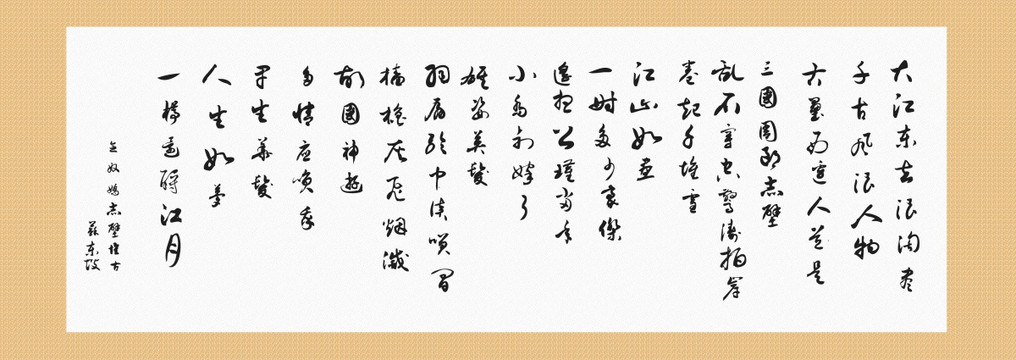 大江东去浪淘尽
千古风流人物
故垒西边人道是
三國周郎赤壁
乱石穿空驚涛拍岸
卷起千堆雪
江山如画
一时多少豪傑
遥想公瑾当年
小乔初嫁了
雄姿英發
羽扇纶巾谈笑间
樯橹灰飞烟灭
故國神遊
多情应笑我
早生华髮
人生如梦
一樽还酹江月
念奴娇赤壁怀古
蘇东坡